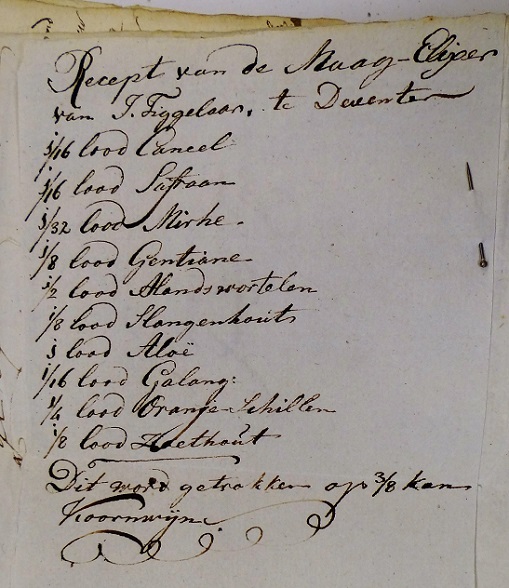 Recept van de Maag-Elixer
van J. Figgelaar, te Deventer
1/16 lood Caneel
1/16 lood Safraan
1/32 lood Mirhe
1/8 lood Gentiane
1/2 lood Alandswortelen
1/8 lood Slangenhout
1 lood Aloë
1/16 lood Galang:
1/4 lood Oranje-Schillen
1/8 lood Zoethout
Dit word getrokken op 3/8 kan
Koornwijn